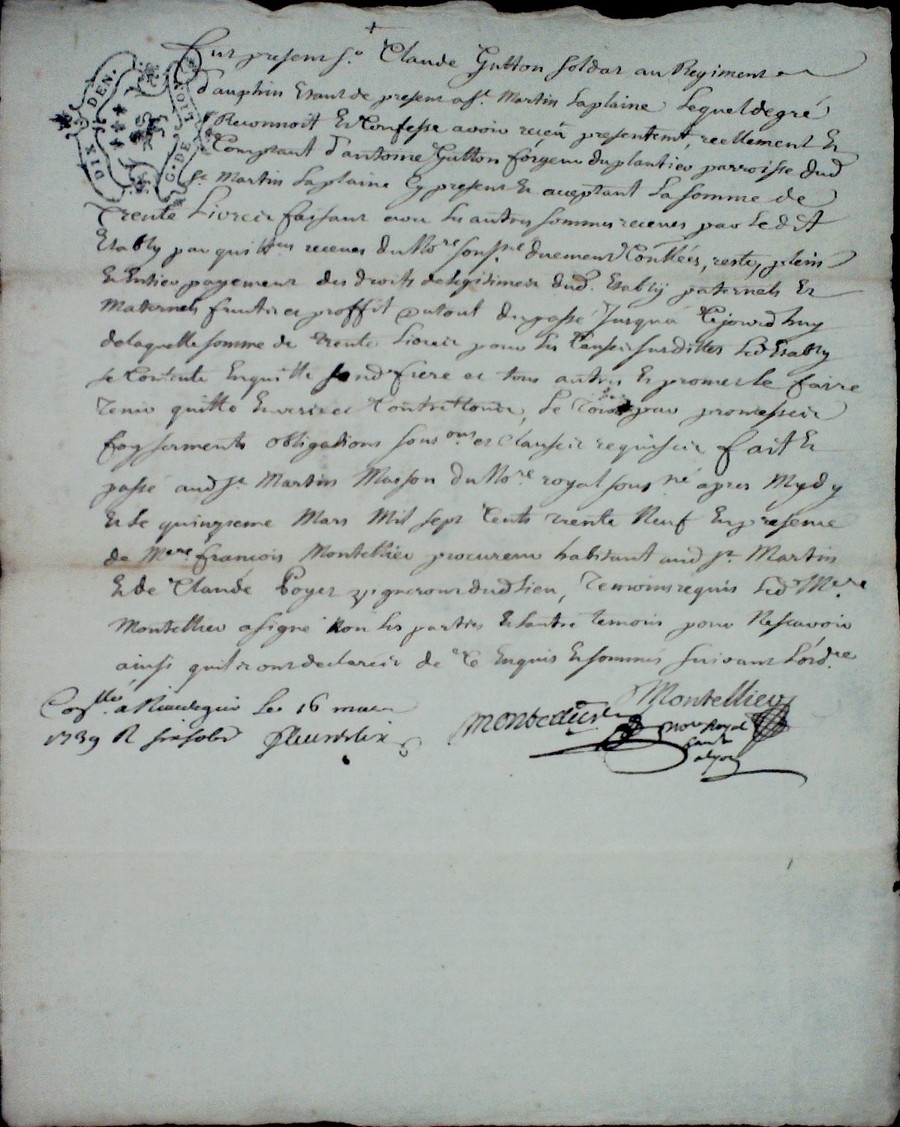 DIX DEN.
G. DE
Fut present Sr. Claude Gutton soldat au Regiment
dauphin Etant de present a St. Martin laplaine Lequel de gré
Reconnoit Et Confesse avoir receu presentemt, reellement Et
Comptant d'antoine Gutton forgeur du plantier parroisse dud
St. Martin laplaine Cy present Et aceptant La somme de
Trente Livres faisant avec les autres sommes receues par le dit
Etably par quittances receues du Nore souss.né duement Contllées, reste, plein
Et Entier payement des droits de legitimes dud. Etably paternels Et
Maternels fruits et proffit du tout du passé Jusqua Cejourdhuy
de laquelle somme de trente Livres pour les Causes susdittes Led Etably
se Contente Enquitte sond frere et tous autres Et promet le faire
Tenir quitte Envers et Contre tous, Le Tout par promesses
foy serments obligations soumons et Clauses requises fait Et
passé aud St. Martin Maison du Nore royal sousné apres Mydy
Et Le quinzieme Mars Mil sept Cents trente Neuf En presence
de Mere françois Montellier procureur habitant aud St. Martin
Et de Claude Poyet vigneron dud Lieu, Temoins requis Led. Mere
Montellier a signé Non les parties Et lautre temoin pour Ne scavoir
ainsi quils ont declarés de Ce Enquis Et sommés suivant Lordre
Montellier
Contllé a Rivedegier Le 16 mars
1739 R six sols
Nore Royal